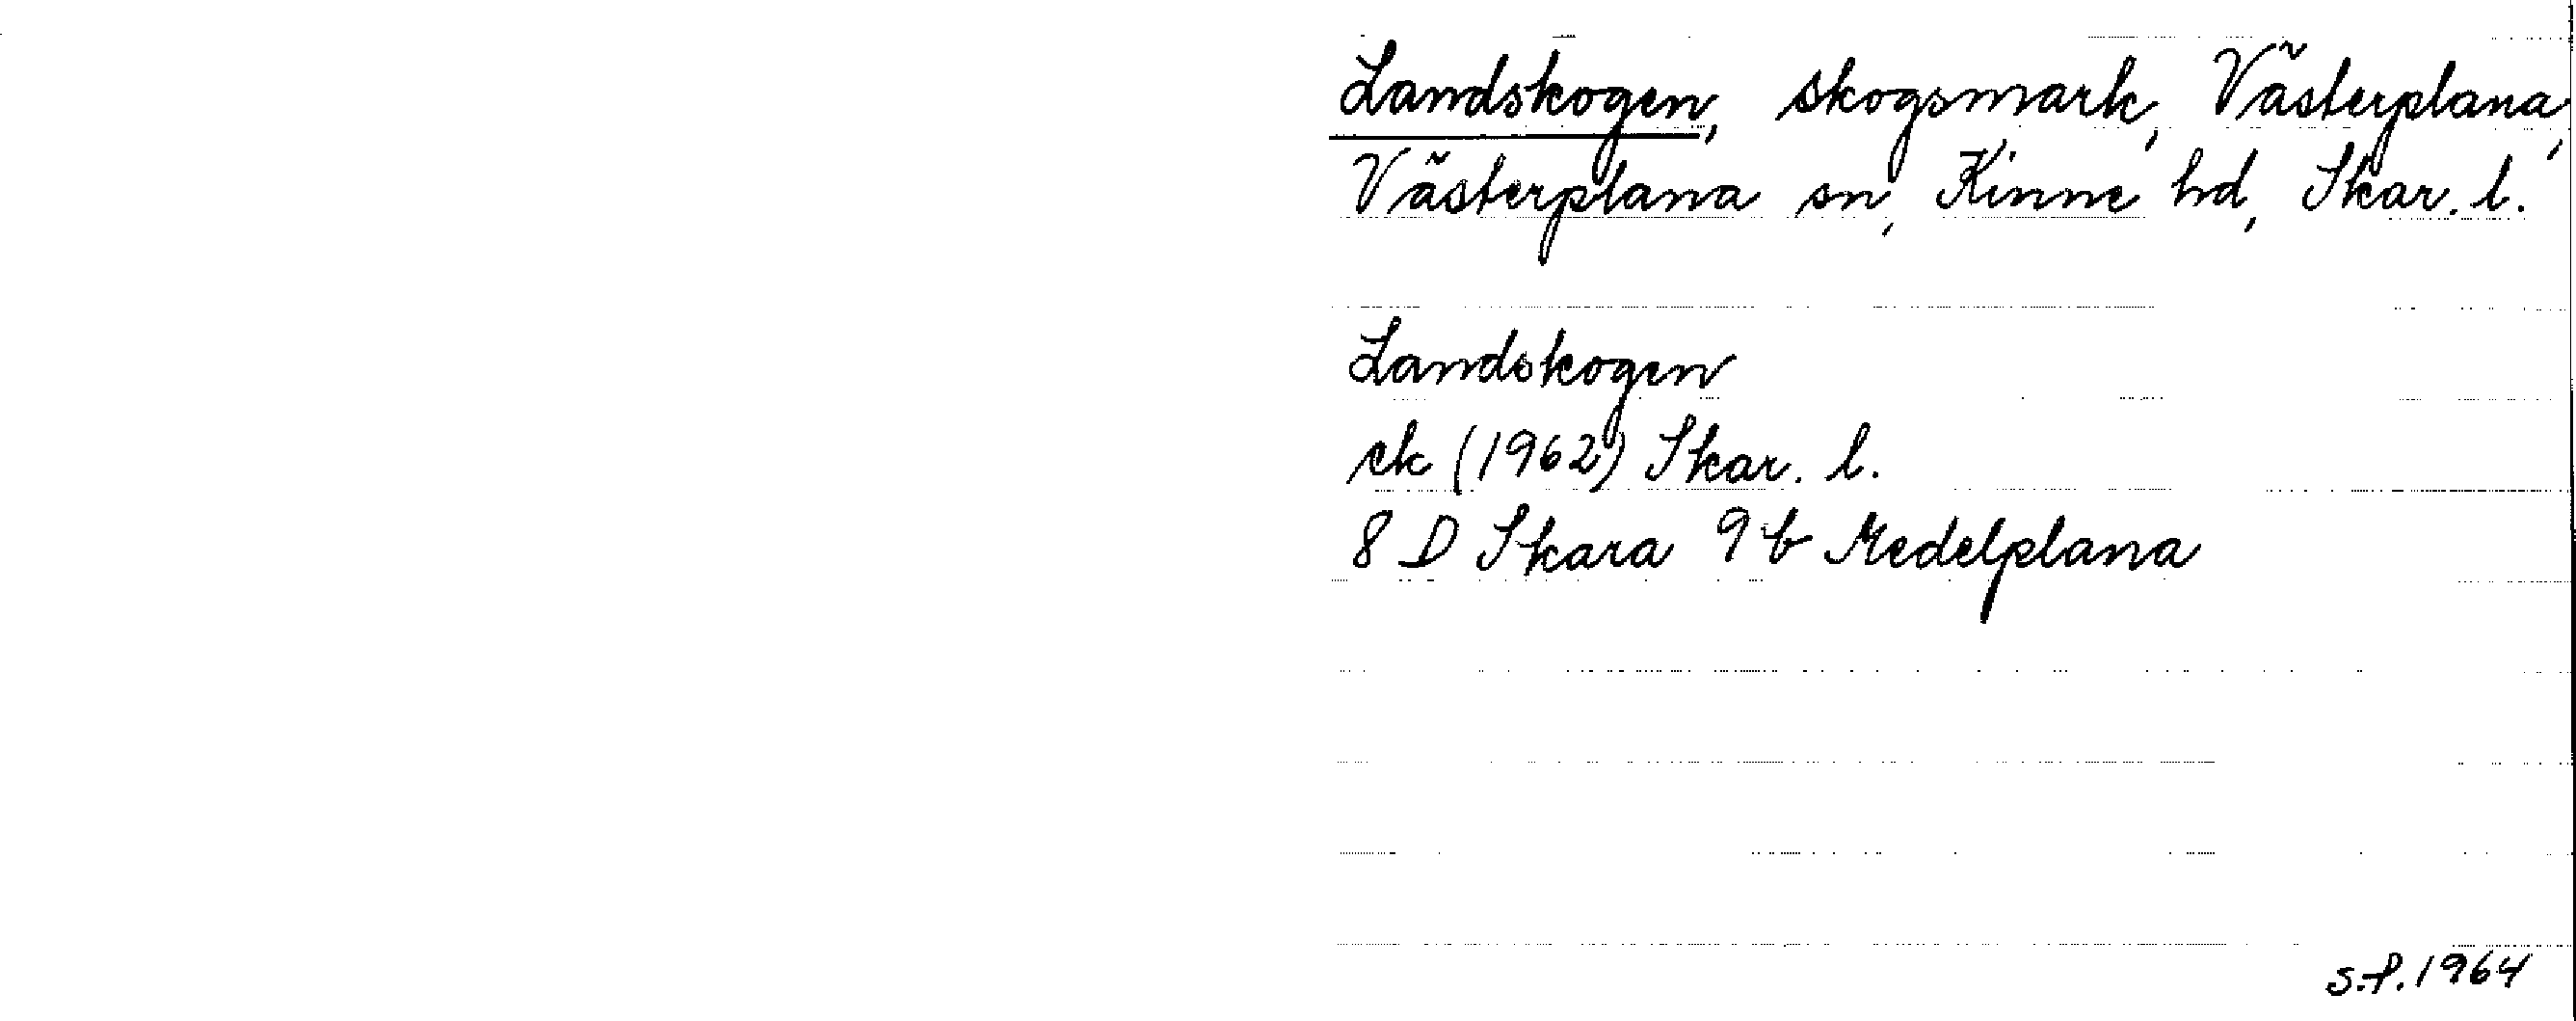 Landskogen, skogsmark, Västerplana,
Västerplana sn, Kinne hd, Skar. l.
Landskogen
ek (1962) Skar. l.
8 D Skara 9 b Medelplana
S.P. 1964